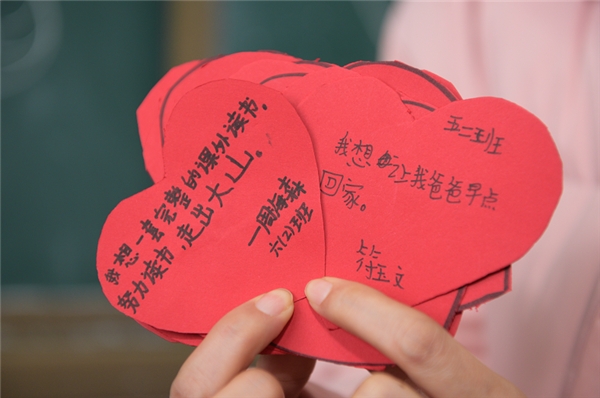 我想一套完整的课外读书。
努力读书,走出大山。
一周海森
六(2)班
五二班
我想让我爸爸早点
回家。
符玉文